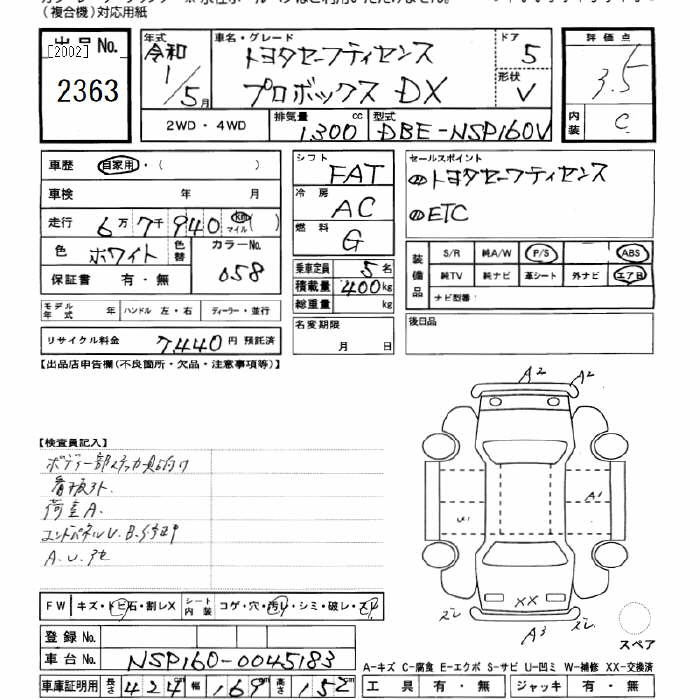 (複合機)対応用紙
出品No. [2002] 2363
年式 令和 1/5月
車名・グレード トヨタセーフティセンス プロボックス DX
ドア 5
形状 V
評価点 3.5
内装 C
2WD・4WD
排気量 1300 cc
型式 DBE-NSP160V
車歴 自家用・( )
車検 年 月
走行 6万7千940 km マイル( )
色 ホワイト 色替
カラーNo. 058
保証書 有・無
シフト FAT
冷房 AC
燃料 G
乗車定員 5名
積載量 400kg
総重量 kg
セールスポイント
トヨタセーフティセンス
ETC
装備品 S/R 純A/W P/S ABS
純TV 純ナビ 革シート 外ナビ エアB
ナビ型番:
モデル年式 年 ハンドル 左・右 ディーラー・並行
名変期限 月 日
後日品
リサイクル料金 7440円 預託済
【出品店申告欄(不良箇所・欠品・注意事項等)】
A2 A2
【検査員記入】
荷室A.
A.U.他
U1 A1
XX
A3
スペア
FW キズ・トビ石・割レX シート内装 コゲ・穴・汚レ・シミ・破レ・スレ
登録No.
車台No. NSP160-0045183
A-キズ C-腐食 E-エクボ S-サビ U-凹ミ W-補修 XX-交換済
車庫証明用 長さ 424cm 幅 169cm 高さ 152cm
工具 有・無 ジャッキ 有・無